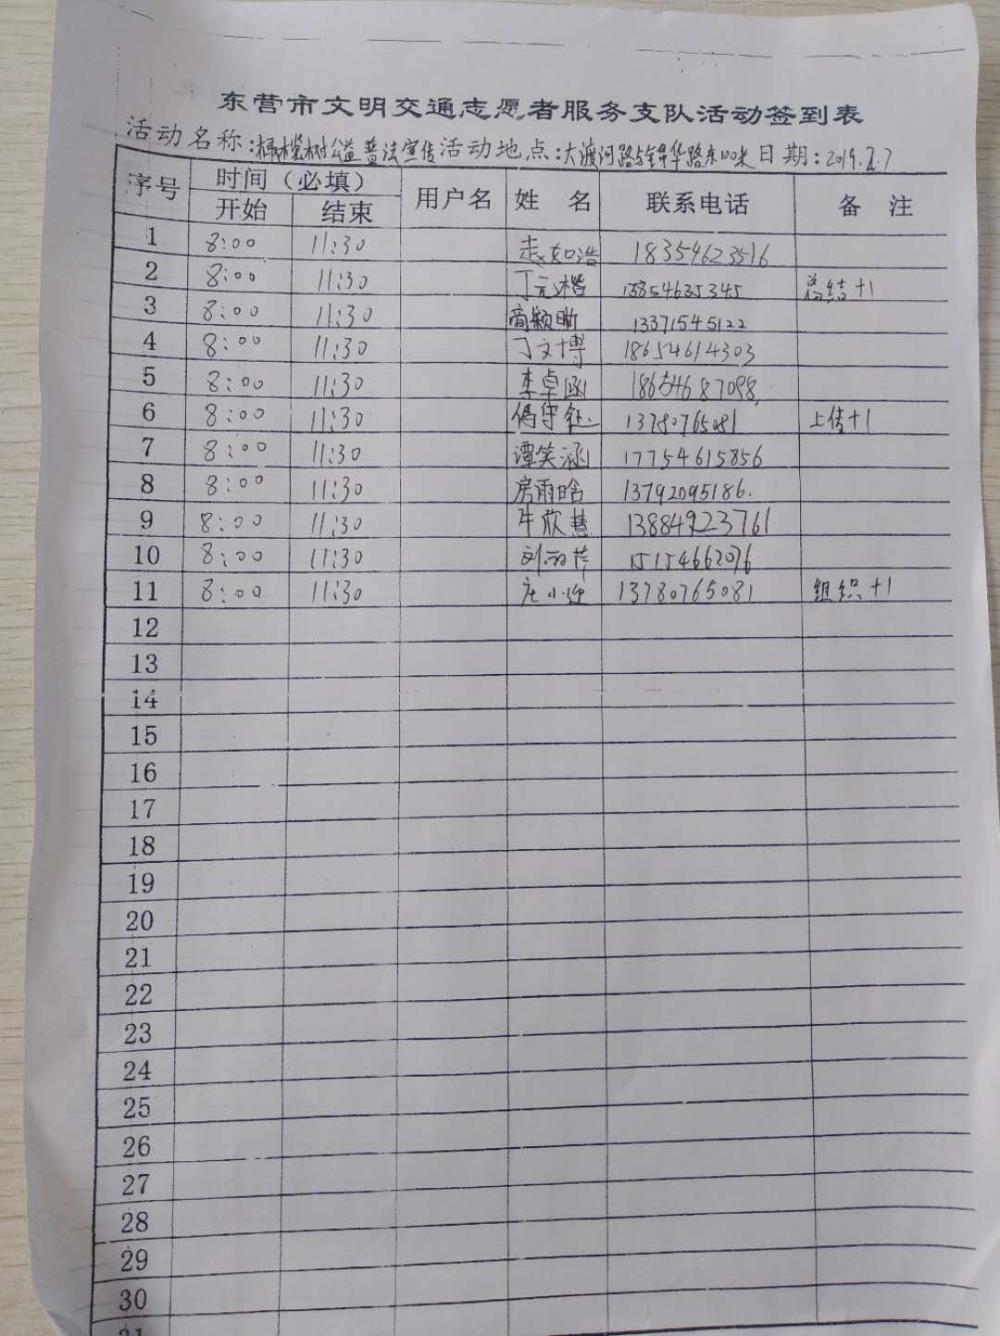 东营市文明交通志愿者服务支队活动签到表
活动名称:橄榄树公益普法宣传 活动地点:大渡河路与华路东100米 日期:2019.7.7
序号 时间（必填） 用户名 姓 名 联系电话 备 注
开始 结束
1 8:00 11:30 18354623516
2 8:00 11:30 丁元楷 13854635345 总结+1
3 8:00 11:30 商颖昕 13371545122
4 8:00 11:30 丁文博 18654614303
5 8:00 11:30 李卓函 18654687098
6 8:00 11:30 13780765081 上传+1
7 8:00 11:30 谭笑涵 17754615856
8 8:00 11:30 房雨晗 13792095186.
9 8:00 11:30 牛欣慧 13884923761
10 8:00 11:30 15154662076
11 8:00 11:30 13780765081 组织+1
12
13
14
15
16
17
18
19
20
21
22
23
24
25
26
27
28
29
30
31